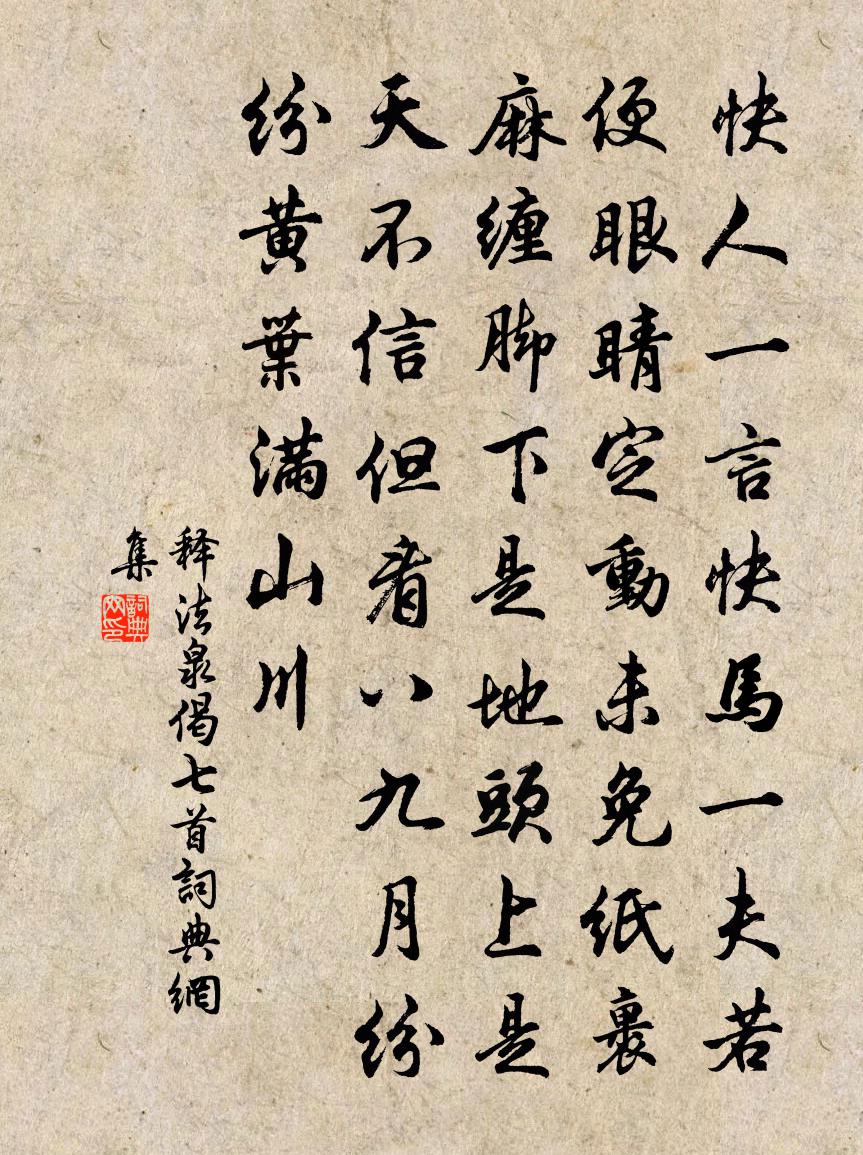 快人一言快馬一夫若
便眼睛定動未免紙裹
麻纏脚下是地頭上是
天不信但看八九月紛
紛黄葉滿山川
释法泉偈七首詞典網
集
詞典网印